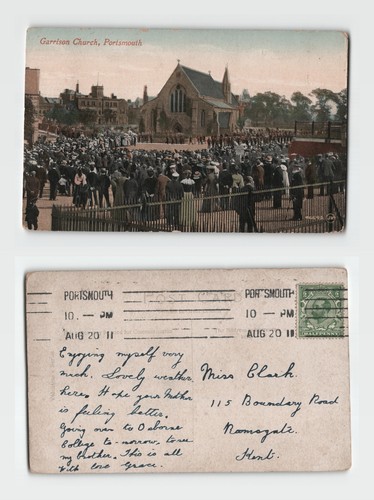 Garrison Church, Portsmouth
POST CARD
PORTSMOUTH
10.— PM
AUG 20 11
PORTSMOUTH
10.— PM
AUG 20 11
HALFPENNY
Enjoying myself very
much. Lovely weather
here. Hope your Mother
is feeling better.
Going over to Osborne
College to-morrow, to see
my brother. This is all
With love Grace.
Miss Clark.
115 Boundary Road
Ramsgate.
Kent.